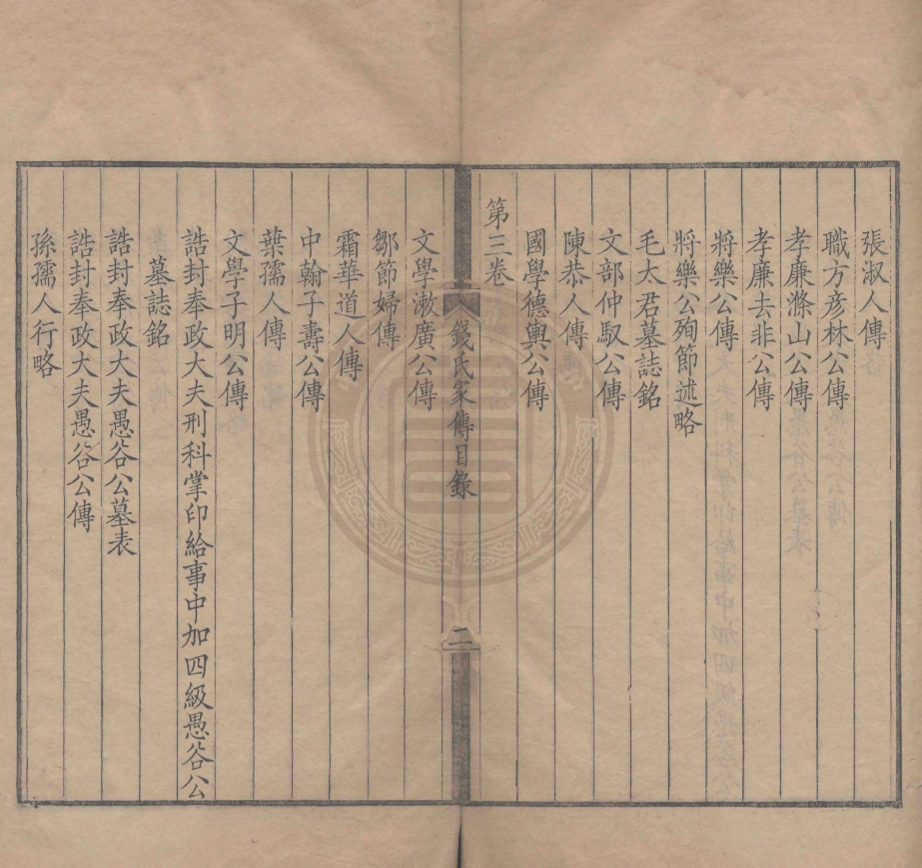 張淑人傳
職方彦林公傳
孝廉滌山公傳
孝廉去非公傳
將樂公傳
將樂公殉節述略
毛太君墓誌銘
文部仲馭公傳
陳恭人傳
國學德輿公傳
第三卷
錢氏家傳目錄
二
文學漱廣公傳
鄒節婦傳
霜華道人傳
中翰子壽公傳
葉孺人傳
文學子明公傳
誥封奉政大夫刑科掌印給事中加四級愚谷公
墓誌銘
誥封奉政大夫愚谷公墓表
誥封奉政大夫愚谷公傳
孫孺人行略